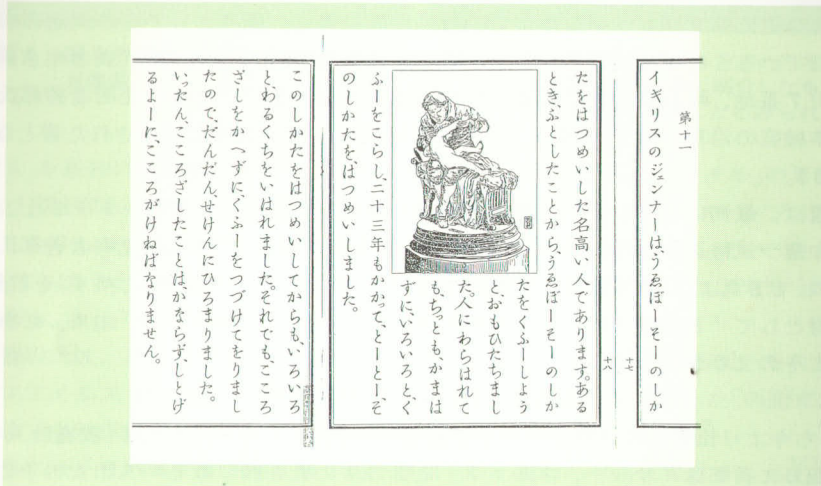 第十一
イギリスのジェンナーは、うゑぼーそーのしか
十七
十八
たをはつめいした名高い人であります。ある
とき、ふとしたことから、うゑぼーそーのしか
たをくふーしよう
と、おもひたちまし
た。人にわらはれて
も、ちつとも、かまは
ずに、いろいろと、く
ふーをこらし、二十三年もかかつて、とーとー、そ
のしかたを、はつめいしました。
このしかたをはつめいしてからも、いろいろ
と、わるくちをいはれました。それでも、こころ
ざしをかへずに、くふーをつづけてをりまし
たので、だんだん、せけんにひろまりました。
いつたん、こころざしたことは、かならず、しとげ
るよーに、こころがけねばなりません。